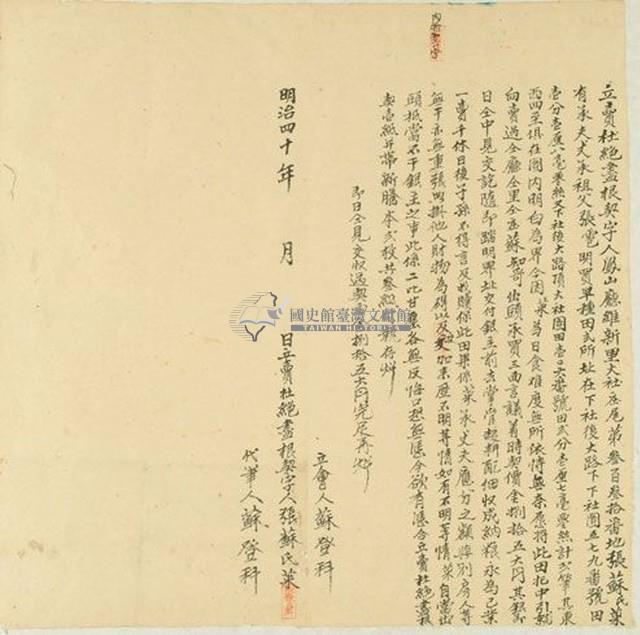 內批□字
立賣杜絕盡根契字人鳳山廳維新里大社庄尾第叁百叁拾番地張蘇氏菜
有承夫父承祖父張電明買單種田弍所址在下社後大路下下社園五七九番號田
壹分壹厘六毫 又下社後大路頂大社園田壹〇六番號田弍分壹厘七毫 計弍筆其東
西四至俱在圖內明白為界今因菜等日食難度無所依恃無奈愿將此田托中引就
向賣過仝廳仝里仝庄蘇知苛出頭承買三面言議着時契價金捌拾五大円其銀即
日仝中見交訖隨即踏明界址交付銀主前去掌管起耕配佃收成納粮永為己業
一賣千休日後子孫不得言及找贖保此田業係菜承丈夫應分之額與別房人等
無干亦無重張典掛他人財物為碍以及交加來歷不明等情如有不明等情菜自當出
頭抵當不干銀主之事此係二比甘愿各無反悔口恐無憑今欲有憑合立賣杜絕盡根
契壹紙并帶新謄本弍枚共叁紙 執存炤
即日仝見交收過契 捌拾五大円完足再炤
立會人蘇登科
明治四十年 月 日立賣杜絕盡根契字人張蘇氏菜
代筆人蘇登科
國史館臺灣文獻館
TAIWAN HISTORICA